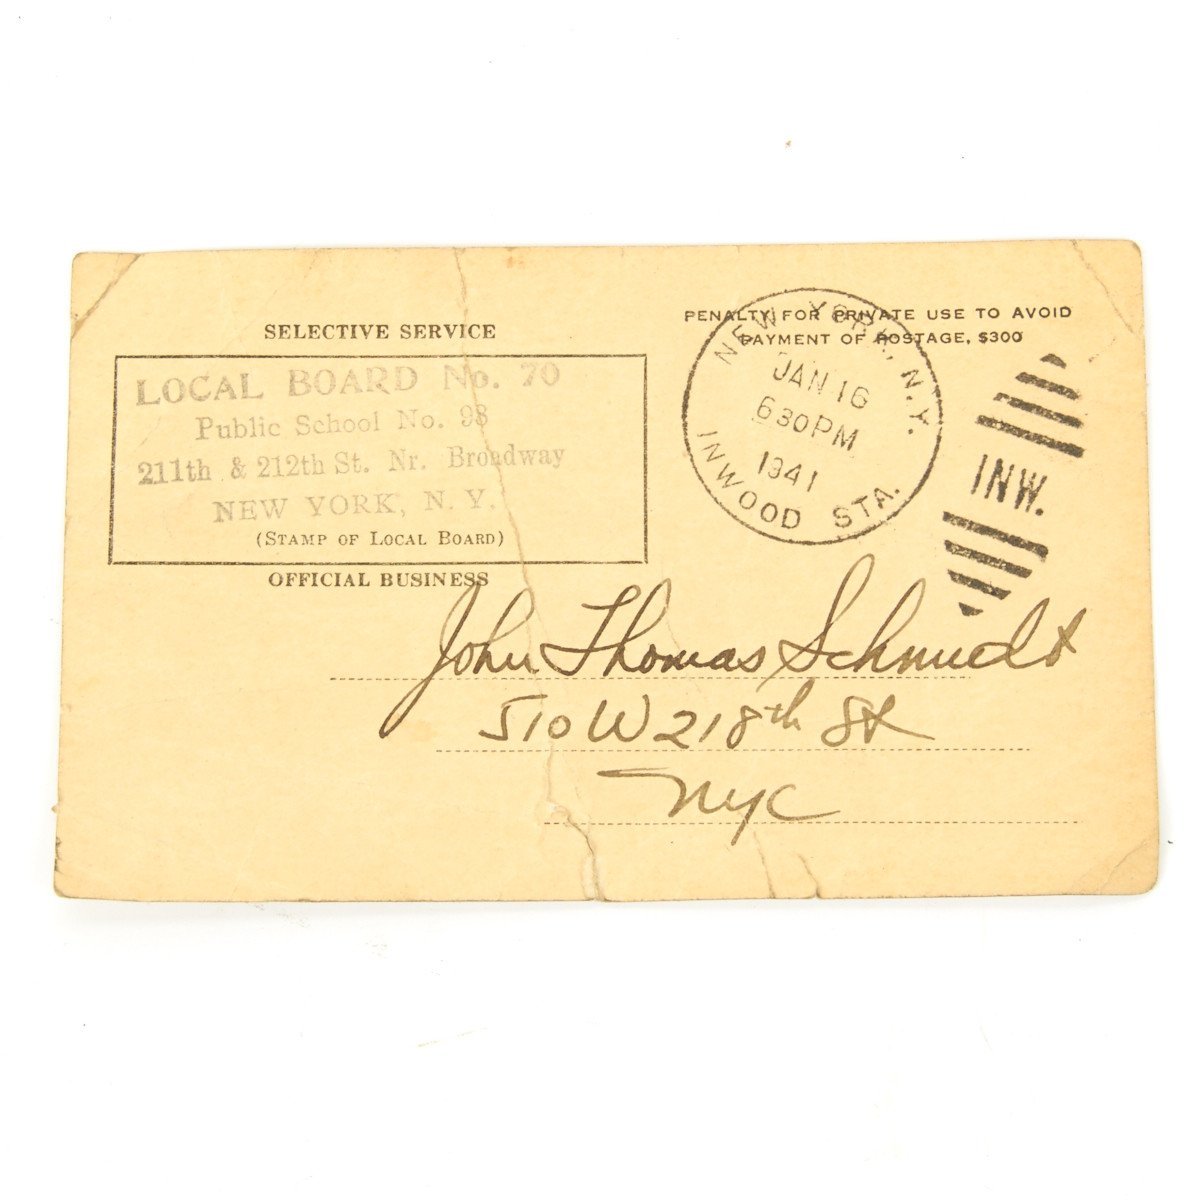 SELECTIVE SERVICE
LOCAL BOARD No. 70
Public School No. 98
211th & 212th St. Nr. Broadway
NEW YORK, N. Y.
(STAMP OF LOCAL BOARD)
OFFICIAL BUSINESS
PENALTY FOR PRIVATE USE TO AVOID
PAYMENT OF POSTAGE, $300
NEW YORK, N.Y.
JAN 16
630PM
1941
INWOOD STA.
INW.
John Thomas Schmidt
510 W 218th St
NYC